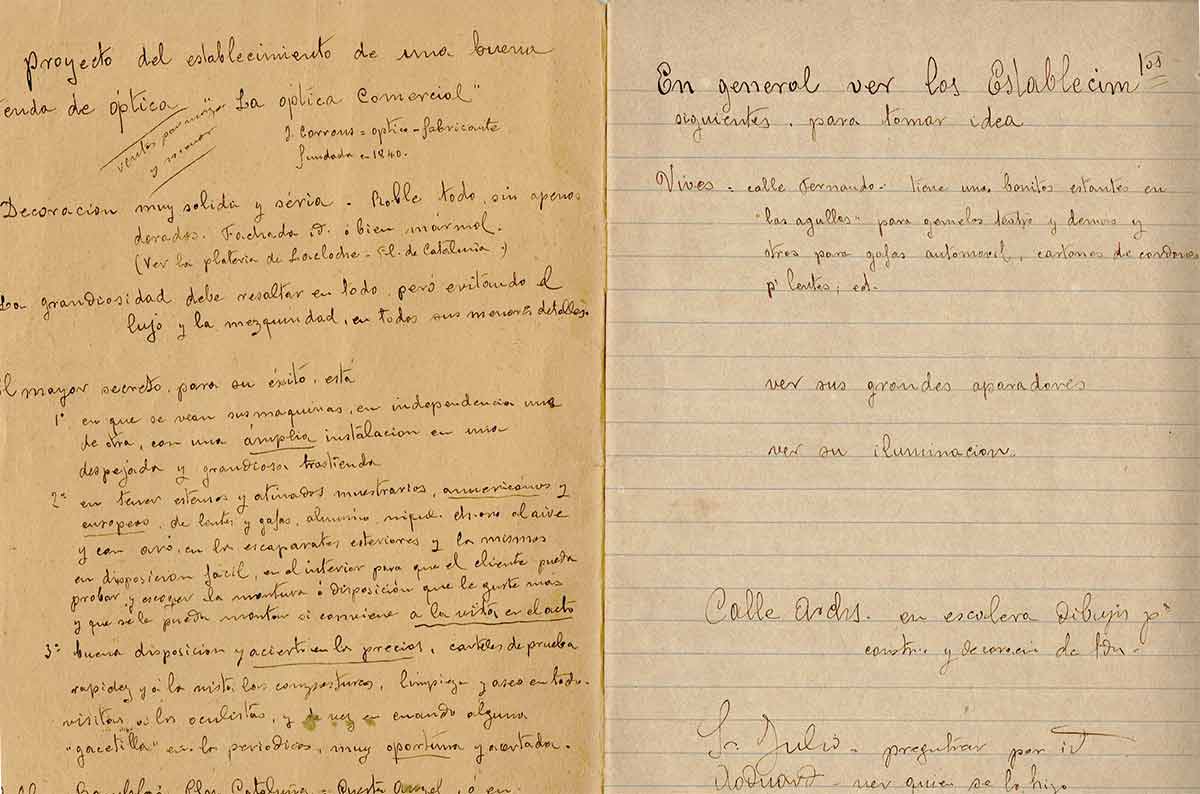 Proyecto del establecimiento de una buena
tienda de óptica "La óptica Comercial"
ventas por mayor
y menor
J. Corrons = óptico-fabricante
fundada en 1840.
Decoración muy solida y séria. Roble todo, sin apenas
dorados. Fachada id. ó bien mármol.
(Ver la plateria de Lacloche - Pl. de Cataluña.)
La grandiosidad debe resaltar en todo, pero evitando el
lujo y la mezquindad, en todos sus menores detalles.
El mayor secreto para su éxito, está
1º en que se vean sus maquinas, en independencia una
de otra, con una ámplia instalacion en una
despejada y grandiosa trastienda
2º en tener estensos y atinados muestrarios, americanos y
europeos, de lentes y gafas, aluminio, niquel al aire
y con aró, en los escaparates esteriores y los mismos
en disposicion fácil, en el interior para que el cliente pueda
probar y escoger la montura ó disposición que le guste mas
y que se le pueda montar si conviene a la vista en el acto
3º buena disposicion y acierto en los precios, carteles de prueba
rapidez y á la vista las composturas, limpieza y aseo en todo.
visitas á los oculistas, y de vez en cuando alguna
"gacetilla" en los periodicos, muy oportuna y acertada.
Pza Cataluña = Puerta Angel, ó en
En general ver los Establecim tos
siguientes, para tomar idea
Vives = calle Fernando. tiene unos bonitos estantes en
"las agullas" para gemelos teatro y demas y
otros para gafas automovil, cartones de cordones
pª lentes, etc.
ver sus grandes aparadores
ver su iluminacion.
Calle Archs. en escalera Dibujos pª
constr. y decoració de tdas.
Sr. Julio - preguntar por id
ver quien se lo hizo